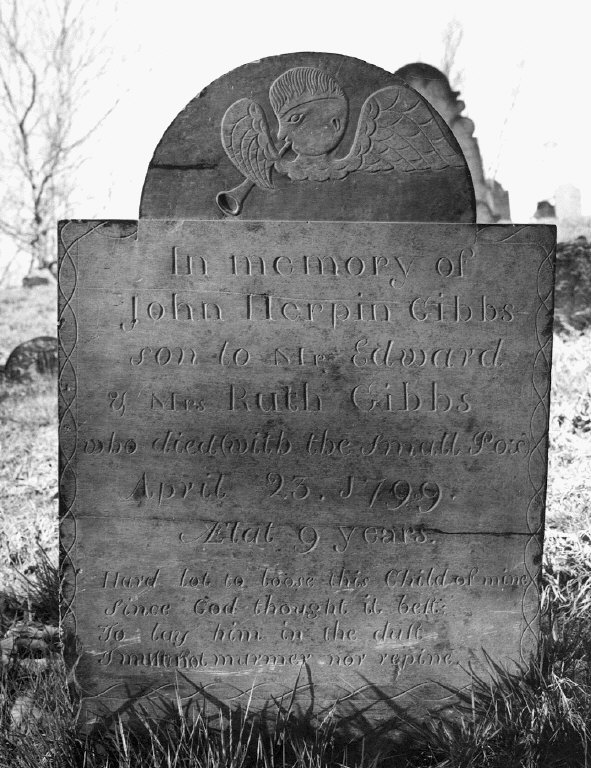 In memory of
John Herpin Gibbs
son to Mr. Edward
& Mrs Ruth Gibbs
who died (with the small Pox)
April 23, 1799.
Ætat 9 years.
Hard lot to loose this Child of mine
Since God thought it best:
To lay him in the dust
I must not murmer nor repine.